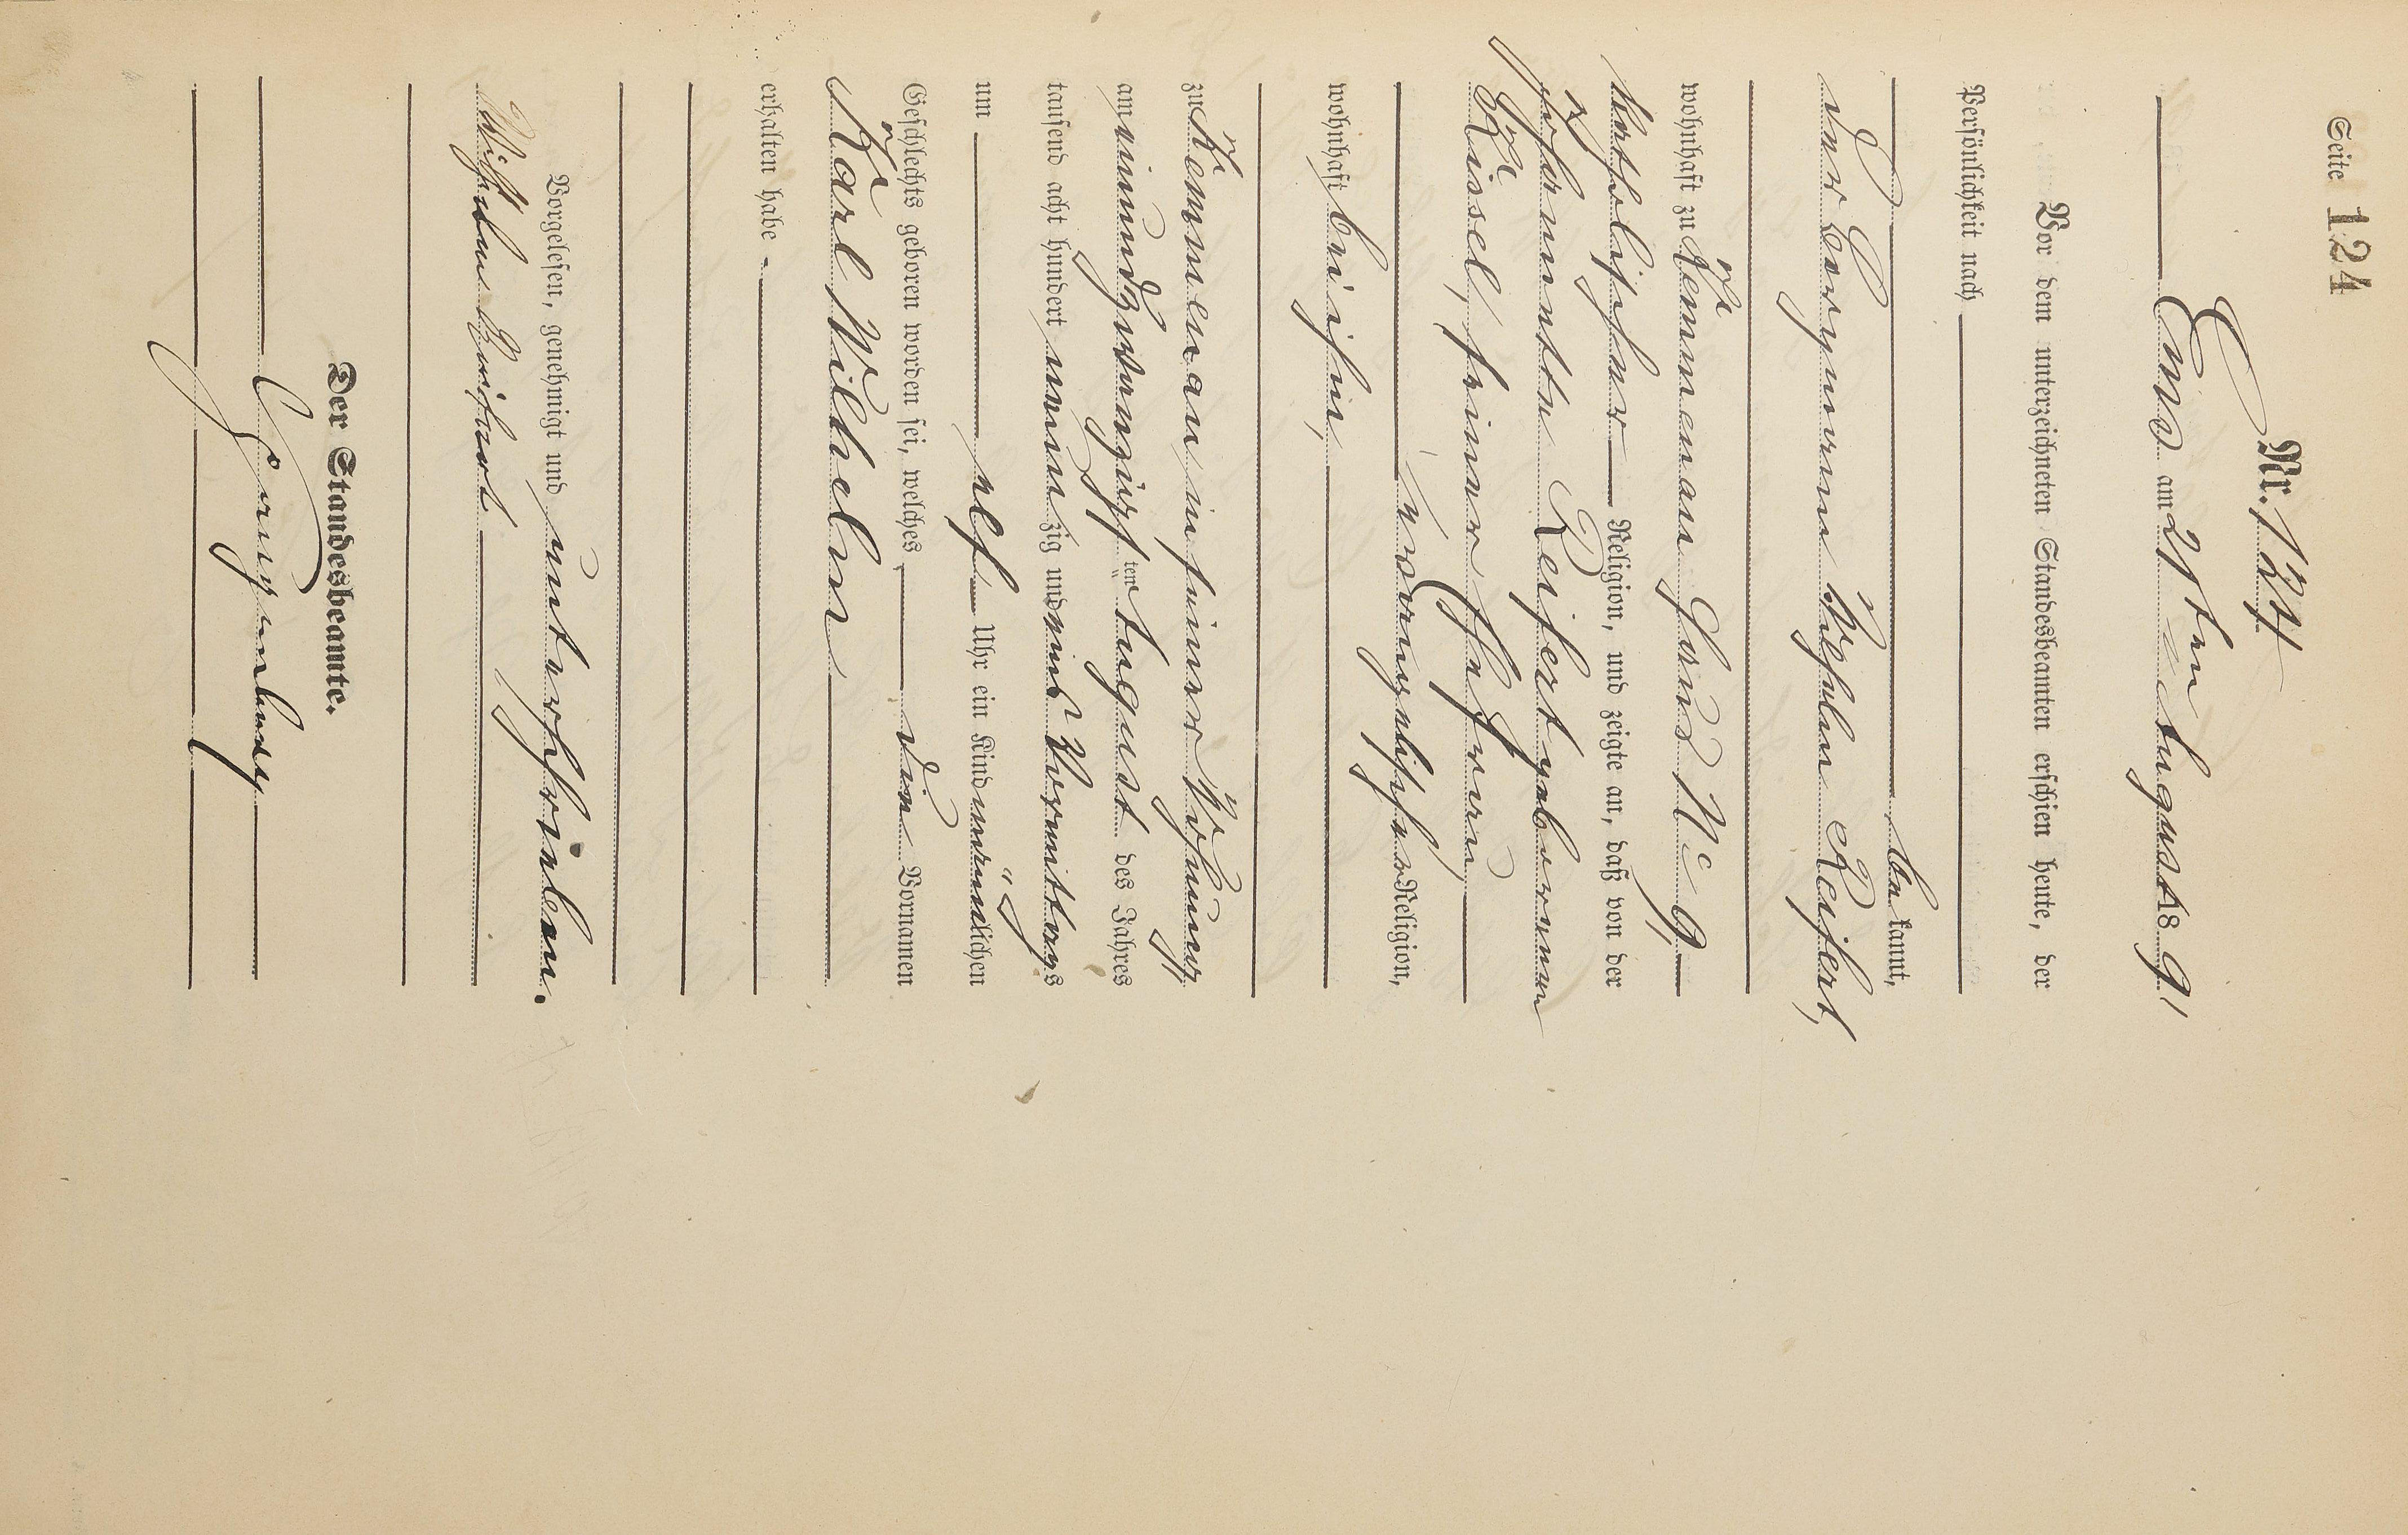 Seite 124
Nr. 124
Ems am 21ten August 1891
Vor dem unterzeichneten Standesbeamten erschien heute, der
Persönlichkeit nach
bekannt,
der Bergmann Wilhelm Reifert,
wohnhaft zu Kemmenau Haus No 9,
katholischer Religion, und zeigte an, daß von der
Reifert geborenen
Kissel, seiner Ehefrau,
evangelischer Religion,
wohnhaft bei ihm,
zu Kemmenau in seiner Wohnung
am einundzwanzigsten August des Jahres
tausend acht hundert neunzig und eins Vormittags
um elf Uhr ein Kind männlichen
Geschlechts geboren worden sei, welches den Vornamen
Karl Wilhelm
erhalten habe.
Vorgelesen, genehmigt und unterschrieben.
Wilhelm Reifert
Der Standesbeamte.